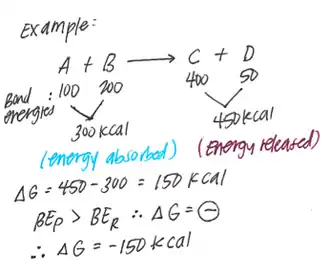 Example:
A + B → C + D
Bond energies: 100 200 400 50
300 kcal 450 kcal
(energy absorbed) (Energy released)
ΔG = 450 - 300 = 150 kcal
BEp > BER ∴ ΔG = ⊖
∴ ΔG = -150 kcal